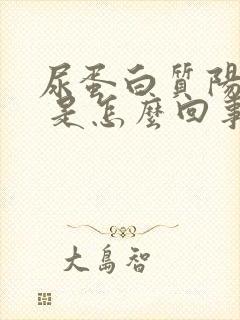 尿蛋白質陽
是怎麼回事
大島智